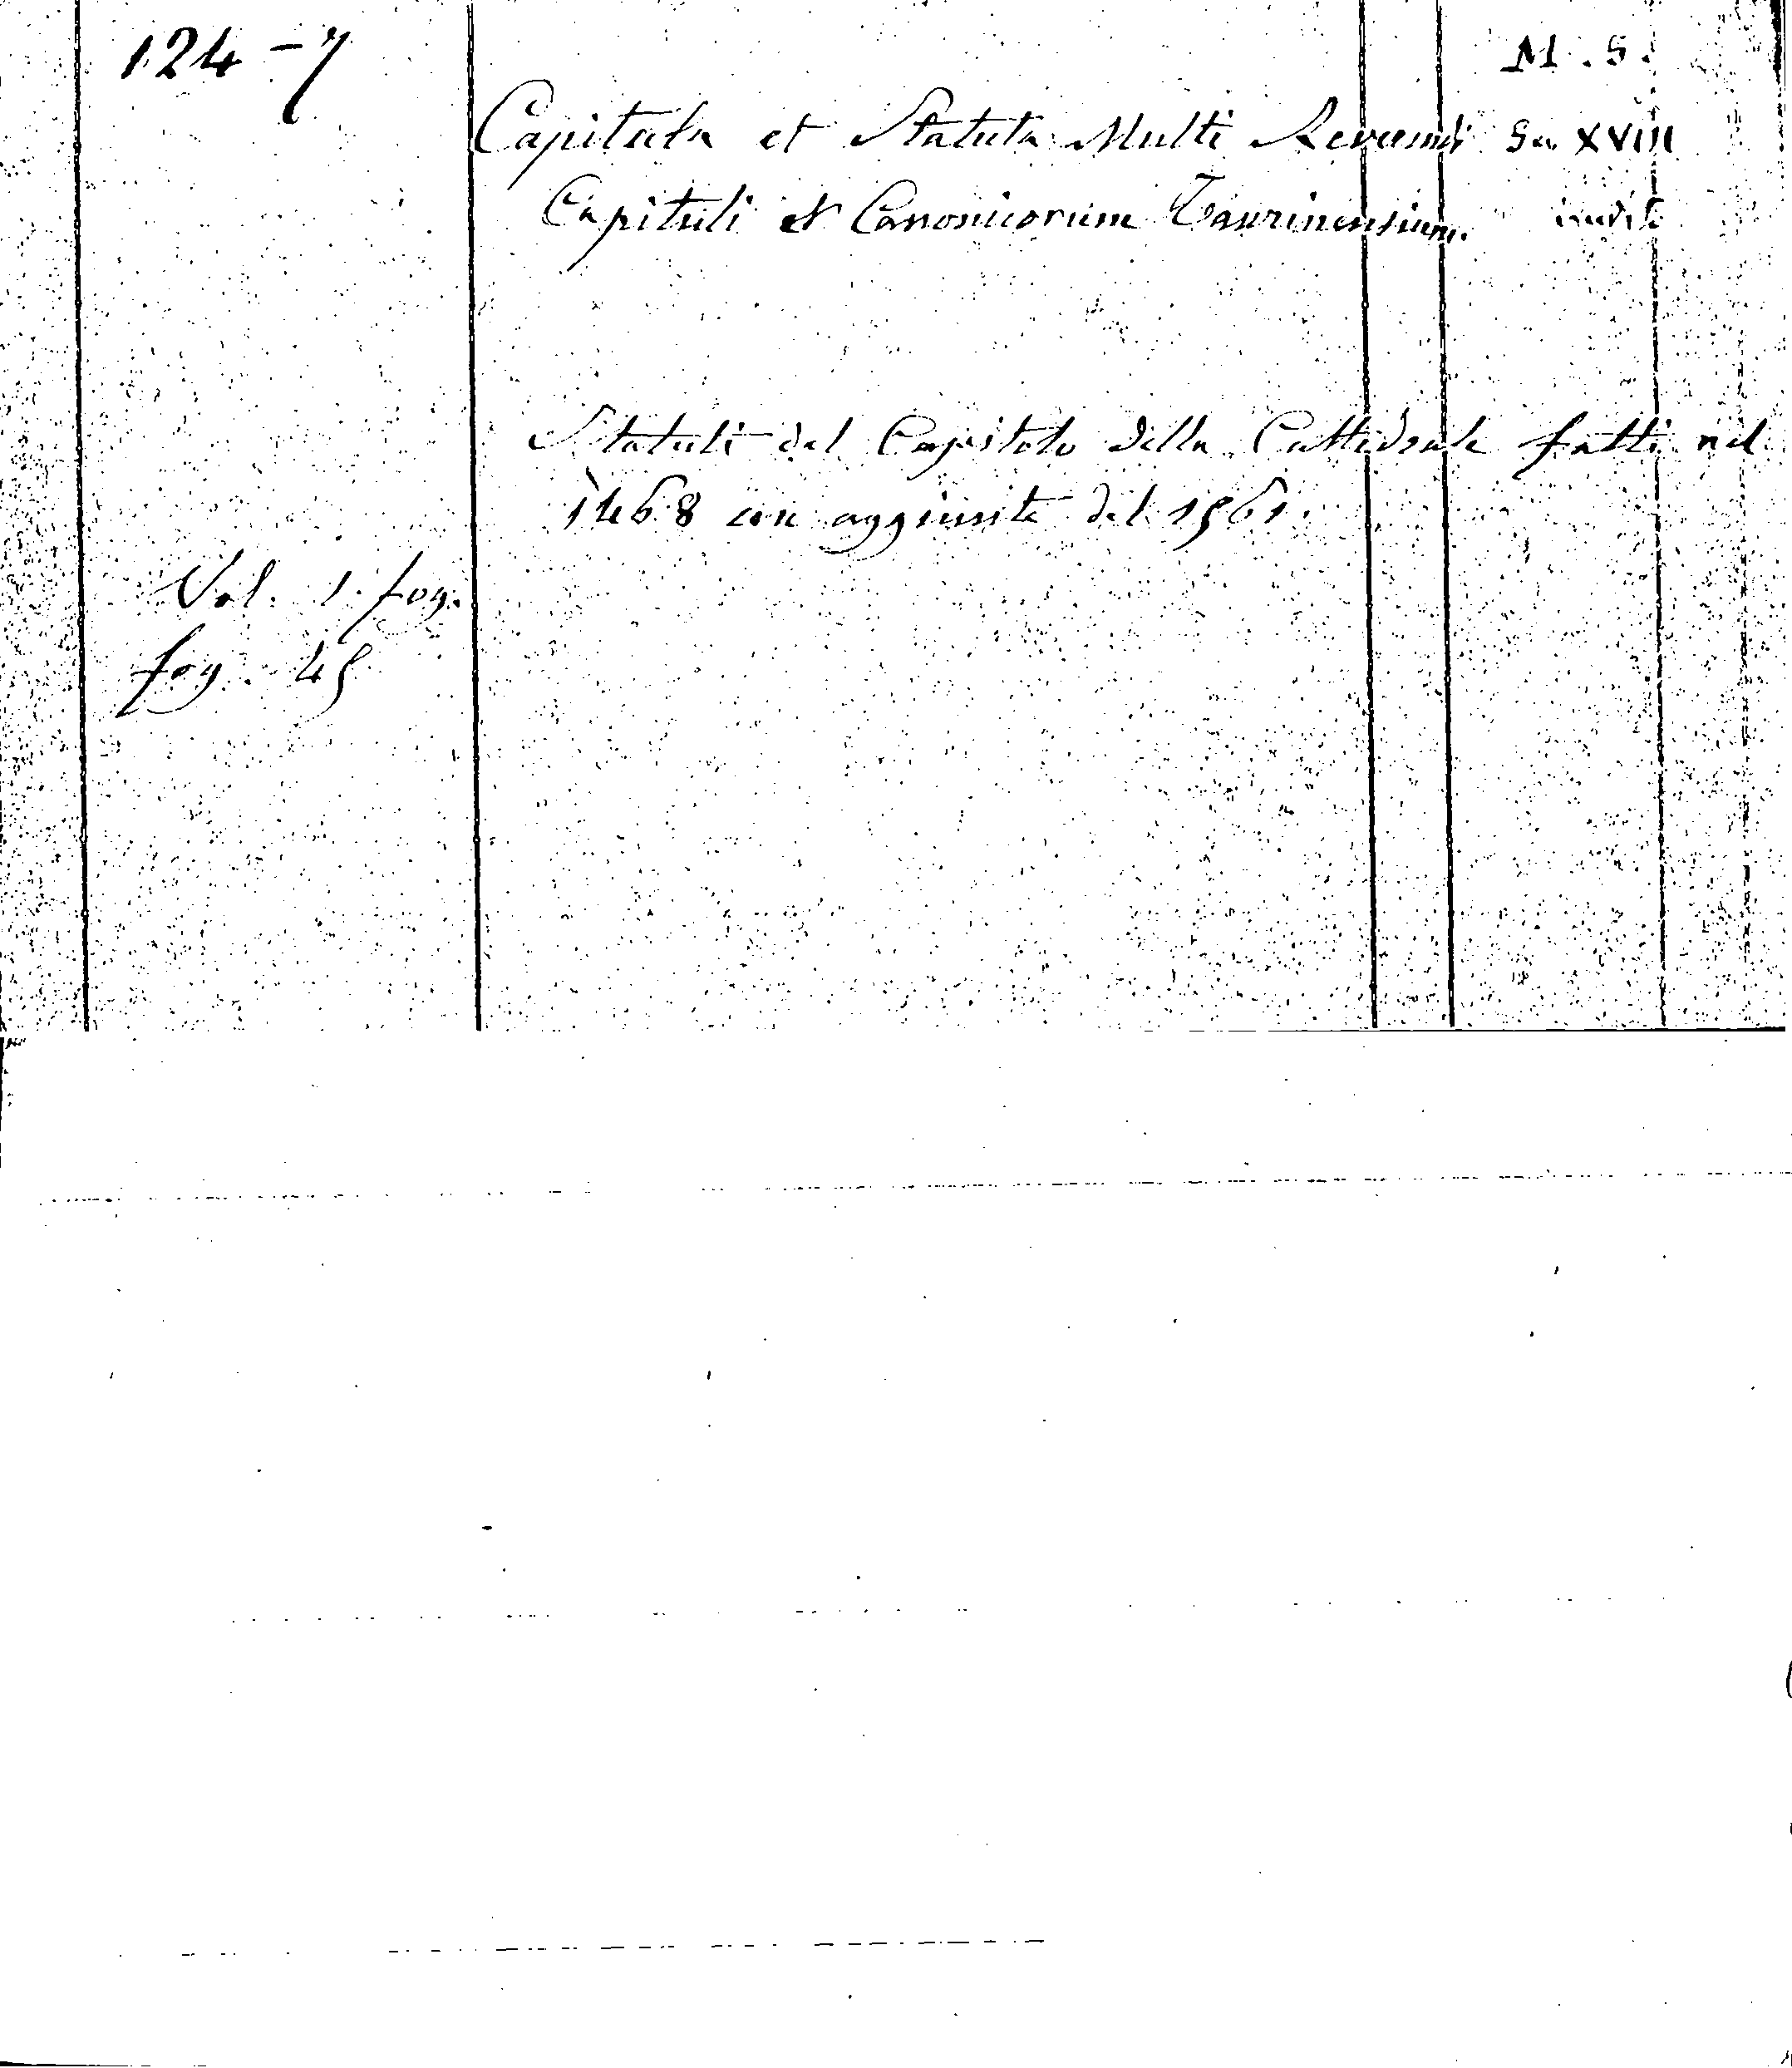 124-7
M. S.
Capitula et Statuta Multi Reverendi Sec XVIII
Capituli et Canonicorum Taurinensium. inedito
Statuti del Capitolo della Cattedrale fatti nel
1468 con aggiunte del 1561.
Vol. 1. fog.
fog. 45